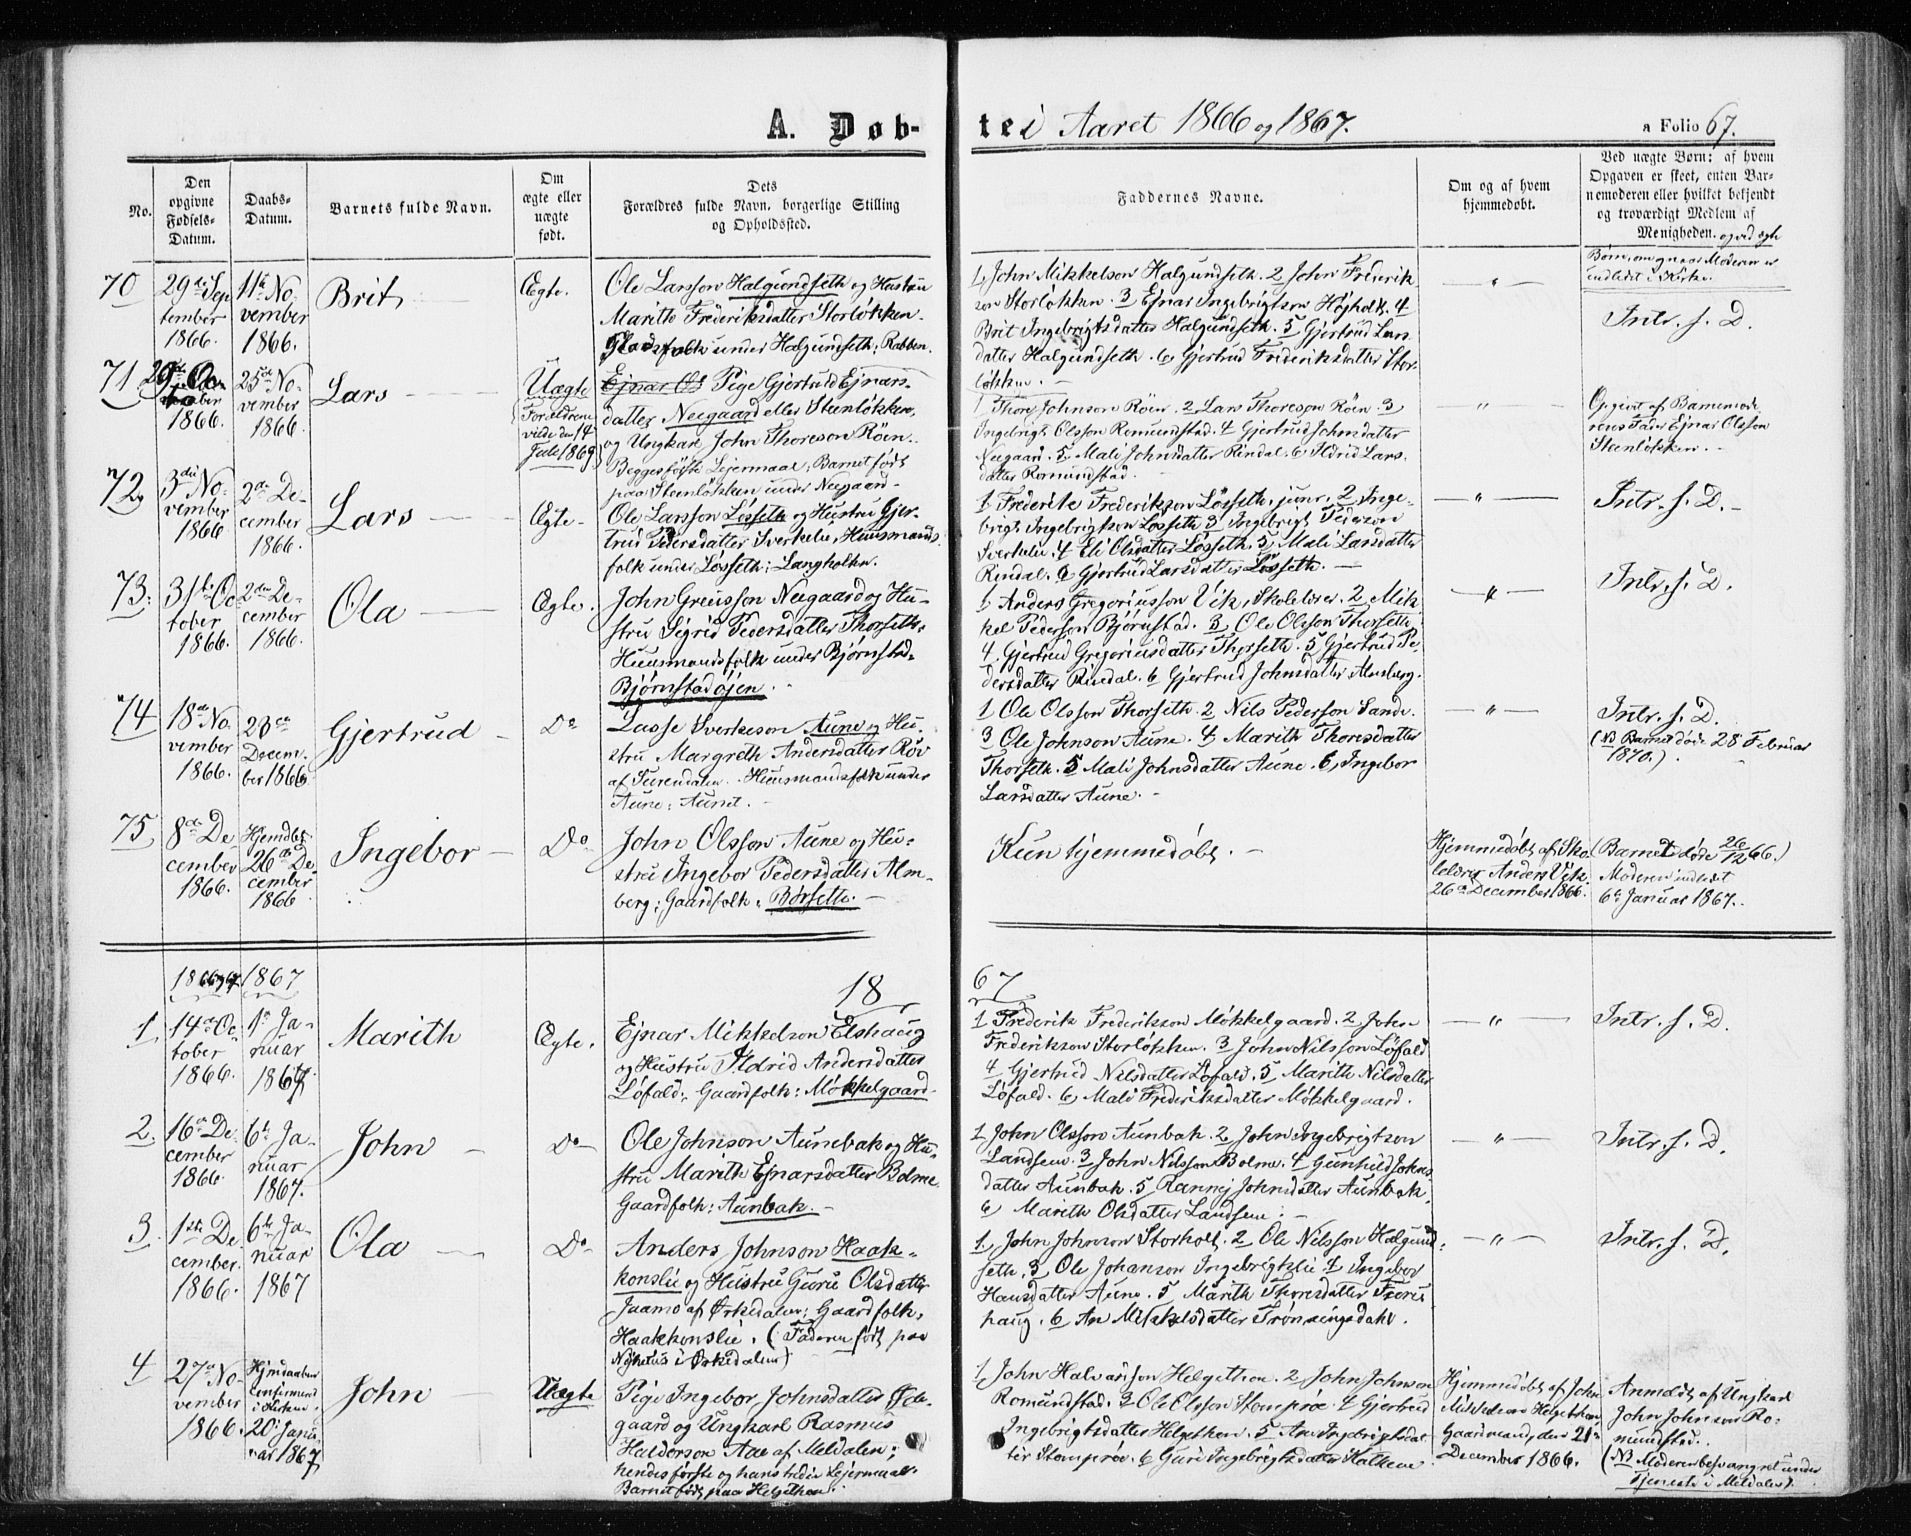 A. Døb-
te i Aaret 1866 og 1867.
a Folio 67.
No.
Den
opgivne
Fødsels-
Datum.
Daabs-
Datum.
Barnets fulde Navn.
Om
ægte eller
uægte
født.
Dets
Forældres fulde Navn, borgerlige Stilling
og Opholdssted.
Faddernes Navne.
Om og af hvem
hjemmedøbt.
Ved uægte Børn: af hvem
Opgaven er skeet, enten Bar-
nemoderen eller hvilket bekjendt
og troværdigt Medlem af
Menigheden. og ved ægte
Børn, om gnaar Moderen er
indledet i Kirke.
70
29de Sep
tember
1866.
11te No
vember
1866.
Brit
Ægte.
Ole Larsson Halgundseth og Hustru
Maritte Frederiksdatter Storløkken.
Pladsfolk under Halgundseth: Rabben.
1, John Mikkelson Halgundseth. 2 John Frederik
son Storløkken. 3 Ejnar Ingebrigtson Høgholt. 4
Brit Ingebrigtsdatter Halgundseth. 5 Gjertrud Lars
datter Halgundseth. 6 Gjertrud Frederiksdatter Stor-
løkken. -
- " -
Intr. f. D.
71
1866.
25de No-
vember
1866.
Lars
Uægte
(Forældrene
viede den 14
Juli 1869)
Ejnar Ols Pige Gjertrud Ejnars-
datter Neegaard eller Steenløkken,
og Ungkarl John Thoreson Røen.
Begges første Lejermaal; Barnet født
paa Steenløkken under Neegaard -
1 Thore Johnson Røen. 2 Lars Thoreson Røen. 3
Ingebrigt Olsson Romundstad. 4 Gjertrud Johnsdatter
Neegaard. 5 Mali Johnsdatter Rindal. 6 Ildrid Lars-
datter Romundstad.
"
Opgivet af Barnemode
rens Fader Ejnar Olsson
Steenløkken. -
72
3die No-
vember
1866
2den De-
cember
1866.
Lars
Ægte -
Ole Larsson Løsseth og Hustru Gjer-
trud Pedersdatter Sverkelie, Huusmands
folk under Løsseth: Langholten.
1 Frederik Frederikson Løsseth, junr. 2 Inge-
brigt Ingebrigtson Løsseth 3 Ingebrigt Pederson
Sverkelie. 4 Eli Olsdatter Løsseth. 5 Mali Larsdatter
Rindal. 6 Gjertrud Larsdatter Løsseth. -
- " -
Intr. f. D. -
73.
31te Oc
tober
1866.
2den De-
cember
1866.
Ola
Ægte.
John Greusson Neegaard og Hu-
stru Sigrid Pedersdatter Thorseth.
Huusmandsfolk under Bjørnstad.
Bjørnstadøjen. -
1 Anders Gregoriusson Vik, Skolelærer. 2 Mik
kel Pederson Bjørnstad. 3 Ole Olsson Thorseth.
4. Gjertrud Gregoriusdatter Thorseth. 5 Gjertrud Pe-
dersdatter Rindal. 6 Gjertrud Johnsdatter Almberg.
- " -
Intr. f. D.
74
18de No
vember
1866.
23de
Decem-
ber 1866
Gjertrud -
Do
Lasse Sverkeson Aune og Hu-
stru Margreth Andersdatter Røv
af Surendalen. Huusmandsfolk under
Aune: Aunet. -
1 Ole Olsson Thorseth. 2 Nils Pederson Sande.
3 Ole Johnson Aune. 4 Marith Thoresdatter
Thorseth. 5 Mali Johnsdatter Aune. 6, Ingebor
Larsdatter Aune. -
- " -
Intr. f. D.
(NB Barnet døde 28 Februar
1870.)
75
8de De
cember
1866.
Hjemdøbt
26de De
cember
1866
Ingebor -
Do
John Olsson Aune og Hu-
stru Ingebor Pedersdatter Alm-
berg; Gaardfolk: Børseth. -
Kun hjemmedøbt. -
Hjemmedøbt af Sko-
lelærer Anders Vik
26de December 1866.
(Barnet døde 26/12 66.)
Moderen indledet
6te Januar 1867.
1866 og 67
1867
18
67
1
14de Oc
tober
1866.
1ste Ja-
nuar
1867.
Marith
Ægte.
Ejnar Mikkelson Elshaug
og Hustru Ildrid Andersdatter
Løfald:, Gaardfolk: Møkkelgaard
1 Frederik Frederikson Møkkelgaard. 2 John
Frederikson Storløkken. 3 John Nilsson Løfald
4 Gjertrud Nilsdatter Løfald. 5 Marith Nilsdatter
Løfald. 6 Mali Frederiksdatter Møkkelgaard.
- " -
Intr. f. D.
2.
16de De-
cember
1866.
6te Ja-
nuar
1867.
John -
Do -
Ole Johnson Aunebak og Hu-
stru Marith Ejnarsdatter Bolme
Gaardfolk: Aunbak. -
1 John Olsson Aunbak. 2 John Ingebrigtson
Landsem. 3 John Nilsson Bolme. 4 Gunhild Johns
datter Aunbak. 5 Rannej Johnsdatter Aunbak.
6 Marith Olsdatter Landsem. -
- " -
Intr. f. D.
3.
1ste De
cember
1866.
6te Ja-
nuar
1867
Ola -
Do
Anders Johnson Haak-
konslie og Hustru Guru Olsdatter
Jaamo af Ørkedalen; Gaardfolk.
Haakkonslie. (Faderen født paa
Nyhuus i Ørkedalen)
1 John Johnson Storholt. 2 Ole Nilsson Halgund-
seth. 3 Ole Johanson Ingebrigtslie 4 Ingebor
Hansdatter Aune. 5 Marith Thoresdatter Furu
haug. 6 An Mikkelsdatter Trønningsdahl.
- " -
Intr. f. D.
4
27de No-
vember
1866.
Hjemdaaben
confirmered
i Kirken
20. Janu
ar 1867
John -
Uægte
Pige Ingebor Johnsdatter Øde-
gaard og Ungkarl Rasmus
Haldorson Aae af Meldalen;
hendes første og hans tredie Lejermaal.
Barnet født paa Helgethon.
1 John Halvarsson Helgethon. 2 John Johnson
Romundstad. 3 Ole Olsson Stomprøe. 4 Gjertrud
Ingebrigtsdatter Helgethon. 5 An Ingebrigtsdat
ter Stomprøe. 6 Guri Ingebrigtsdatter Halten.
Hjemmedøbt af John
Mikkelson Helgethon,
Gaardmand, den 21de
December 1866.
Anmeldt af Ungkarl
John Johnson Ro-
mundstad.
(NB Moderen besvangret under
Tjeneste i Meldalen).